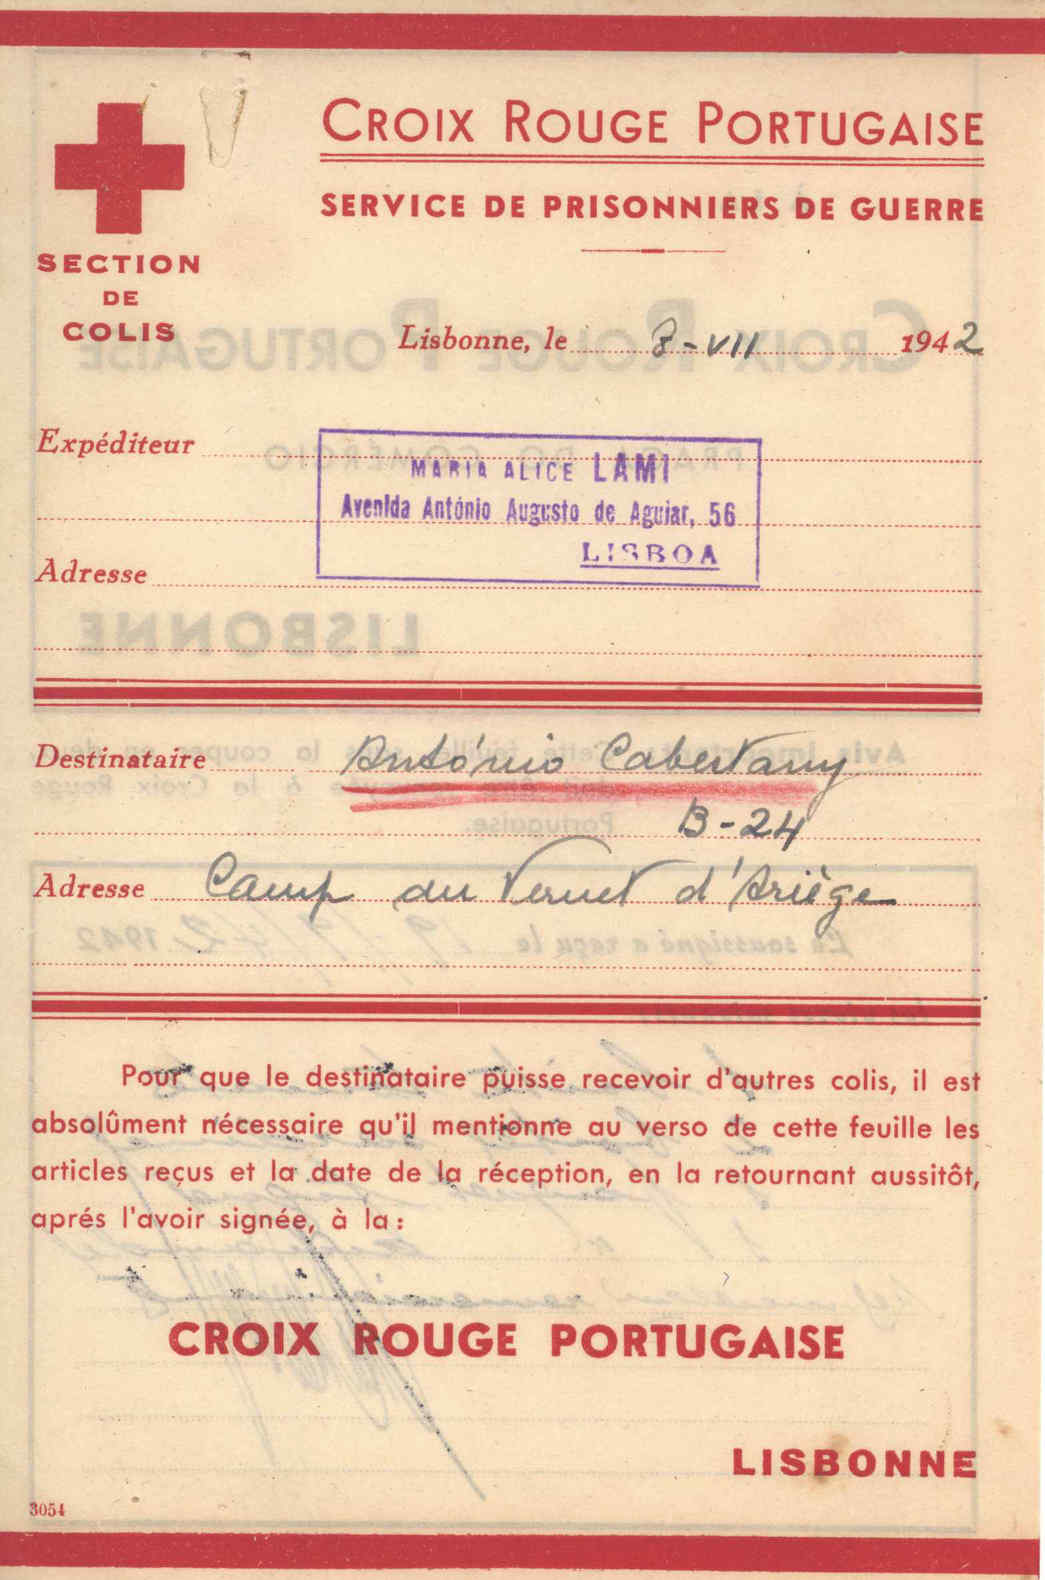 CROIX ROUGE PORTUGAISE
SERVICE DE PRISONNIERS DE GUERRE
SECTION
DE
COLIS
Lisbonne, le 8-VII 1942
Expéditeur
MARIA ALICE LAMI
Avenida António Augusto de Aguiar, 56
LISBOA
Adresse
Destinataire António Cabestany
B-24
Adresse Camp du Vernet d'Ariège
Pour que le destinataire puisse recevoir d'autres colis, il est
absolûment nécessaire qu'il mentionne au verso de cette feuille les
articles reçus et la date de la réception, en la retournant aussitôt,
aprés l'avoir signée, à la:
CROIX ROUGE PORTUGAISE
LISBONNE
3054